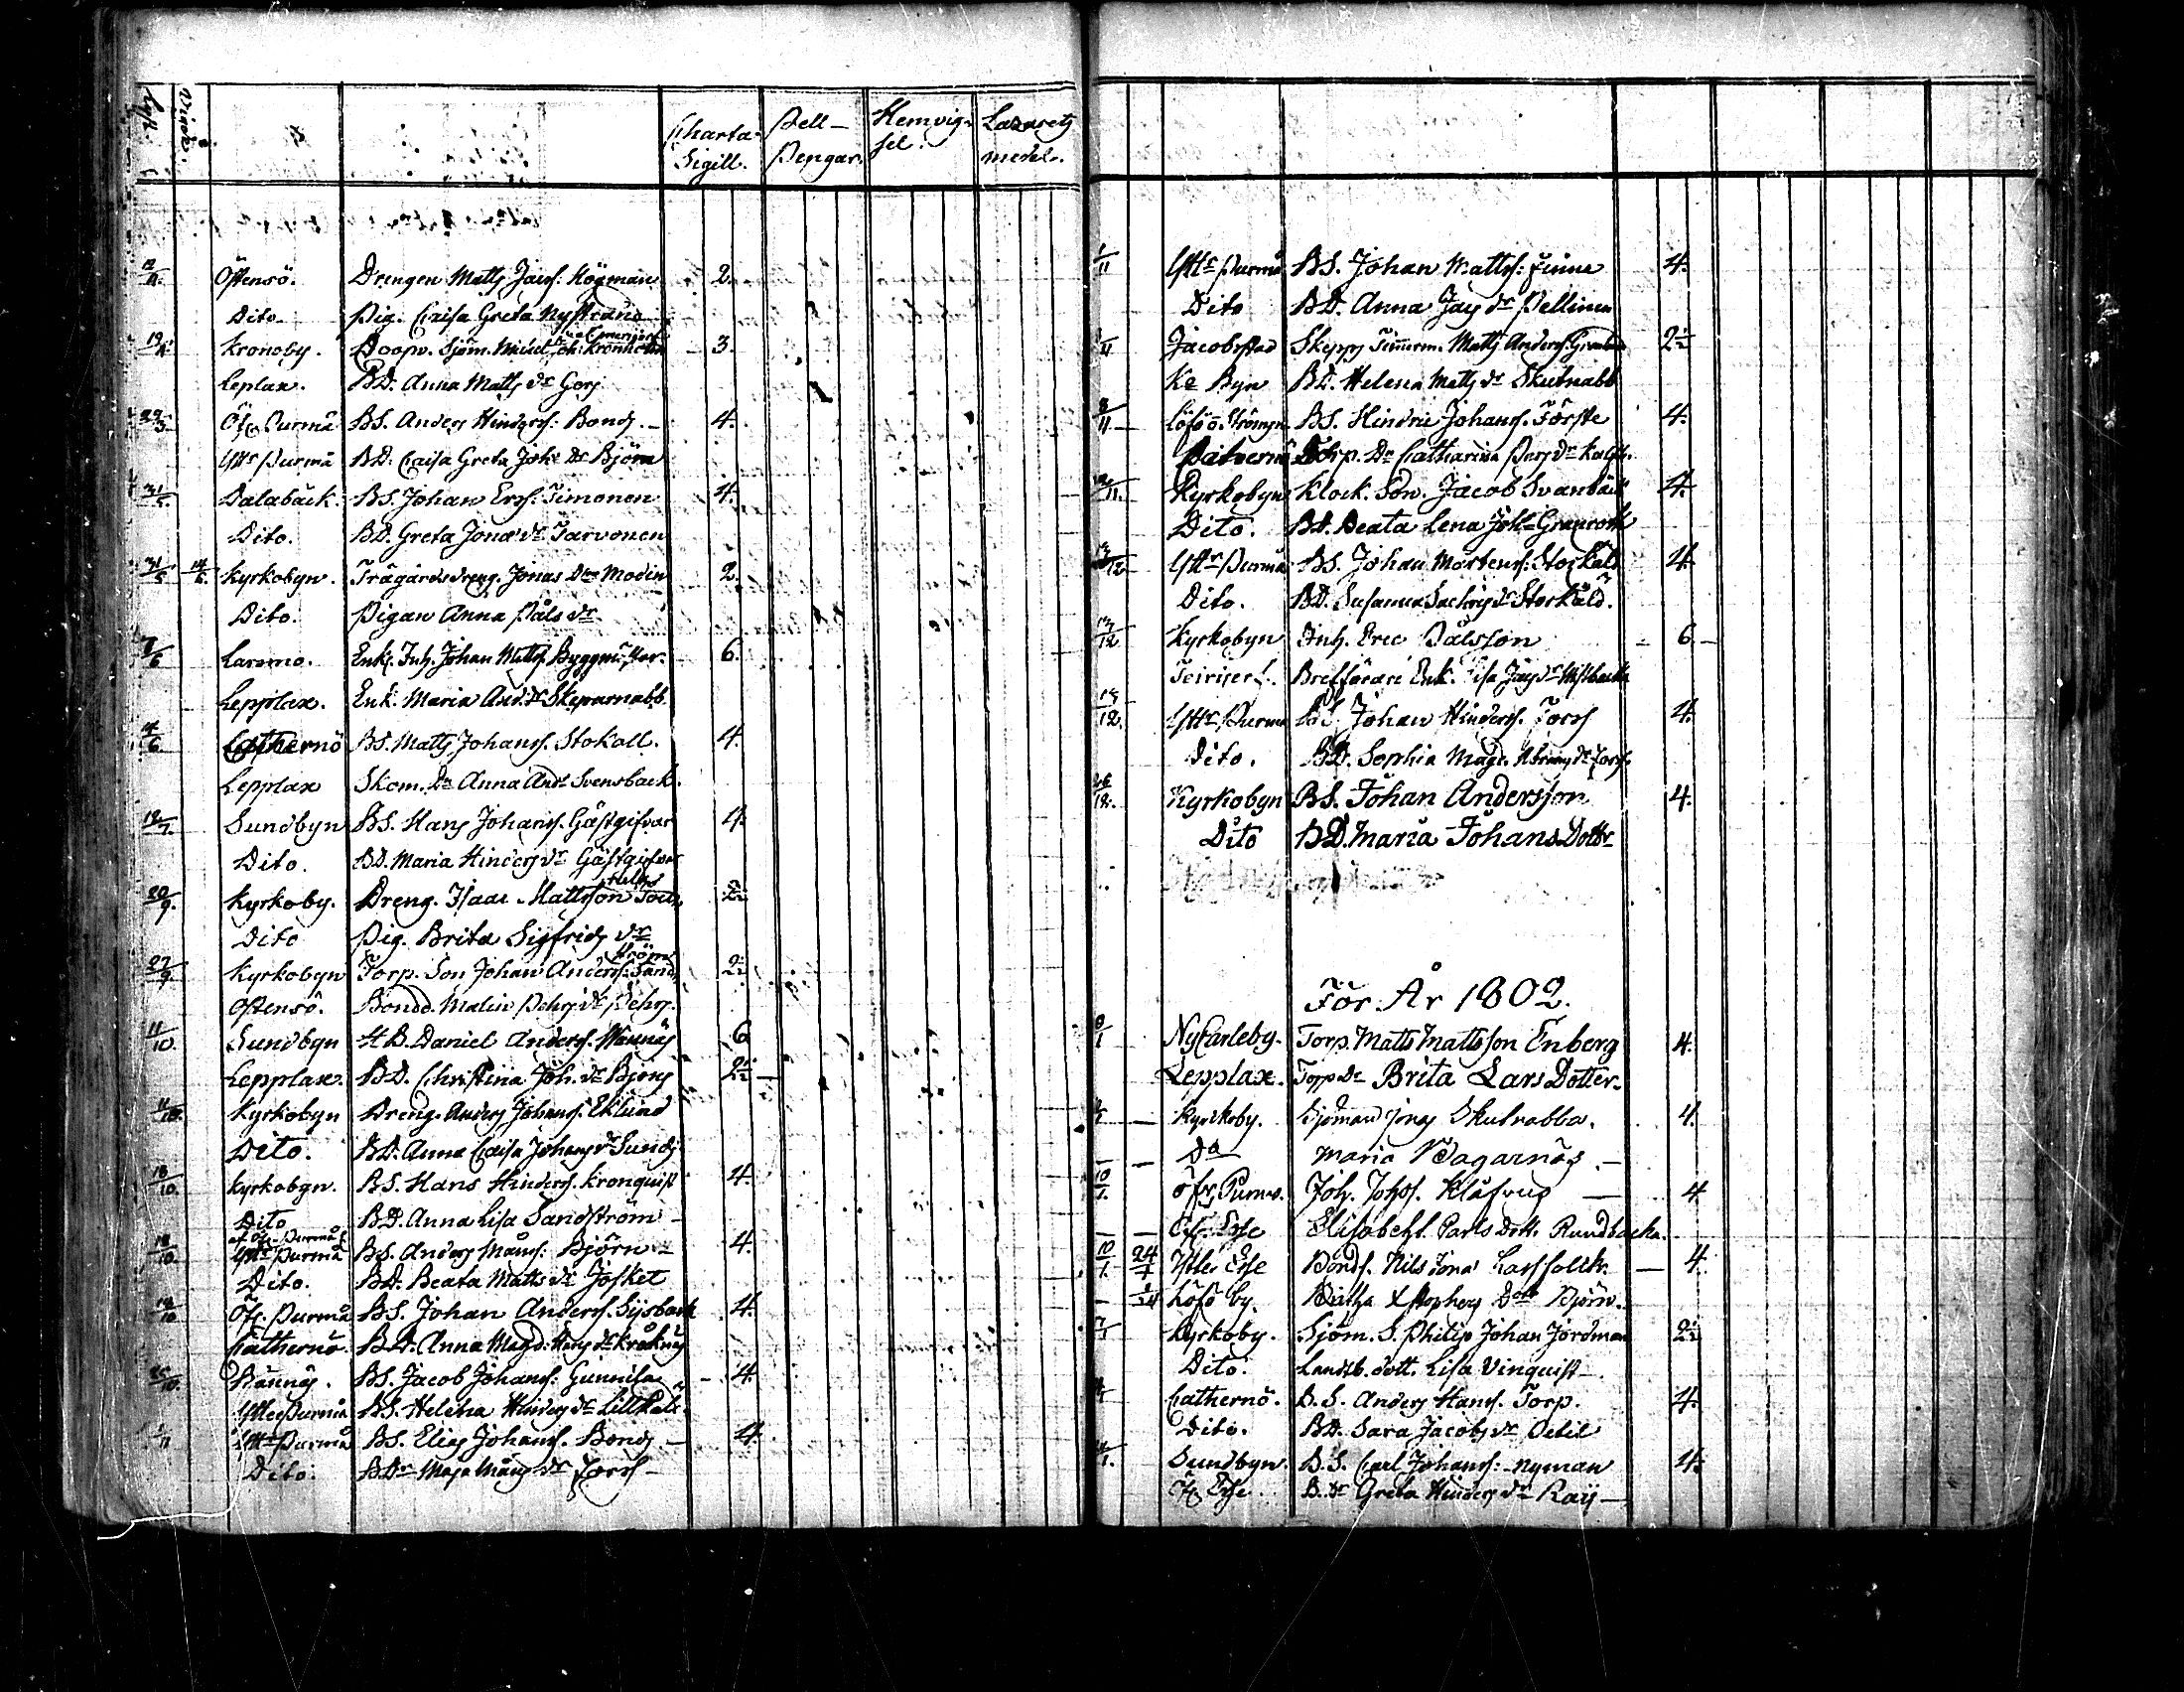 Lyst. Vigde.
Charta Sigill. Pell-Pengar. Hemvigsel. Lazaretz medel.
12/4. Östensö. Drengen Matts Jacs: Högman 2.
Dito. Pig. Caisa Greta Nystrand
19/4. Kronoby. Sjöm. Michel Kronholm 3.
Leplax. BD. Anna Matts dr
29/3 Öfr Purmå BS. Anders Hinders: Bonds 4.
Yttr Purmå BD. Caisa Greta Joh: Dr Björn
31/5. Dalabäck. BS. Johan Erss: Timonen 4.
Dito. BD. Greta Jonæ dr Tarvonen
31/5 14/6. Kyrkobyn. Trägårdsdreng. Jonas Modin 2.
Dito. Pigan Anna Påls dr
7/6 Larsmo. Enkl. Inh. Johan Matts. Byggmästar. 6.
Lepplax. Enk. Maria And. dr Skeparnabb
4/6 Cathernö BS. Matts Johans. Stokall. 4.
Lepplax Skom. Dr Anna And. Svensback.
12/7. Sundbyn BS. Hans Johans. Gästgifvar 4.
Dito. BD. Maria Hinders dr Gästgifvar
20/9. Kyrkoby. Dreng. Isaac Mattsson 2½
Dito Pig. Brita Sigfrids dr
27/9. Kyrkobyn Torp. Son Johan Anders: Sandström 2½
Östensö. Bondd. Malin Pehrs dr Pehrs.
11/10. Sundbyn H B. Daniel Anders. Wännäs 6
Lepplax. BD. Christina Joh. dr Bjons 2½
11/10. Kyrkobyn Dreng. Anders Johans. Eklund
Dito. BD. Anna Caisa Johans dr Sunds
18/10. Kyrkobyn. BS. Hans Hinders. Kronquist 4.
Dito BD. Anna Lisa Sandström
af Öfr. Purmå
18/10. Yttr Purmå BS. Anders Måns: Björn 4.
Dito. BD. Beata Matts dr Josket
18/10 Öfr. Purmå BS. Johan Anders. Sisback 4.
Cathernö. BD. Anna Magd. Hans dr Kråknäs
25/10. BS. Jacob Johans: Gunnila 4.
Ytter Purmå BS. Helena Hinders dr
1/11 Yttr Purmå BS. Elias Johans. Bonds 4.
Dito. BDr Maja Måns dr Forss
1/11 Yttr Purmå BS. Johan Matts: Finne 4.
Dito BD. Anna Jacs dr Pellinen
1/11 Jacobstad Skepps Timmerm. Matts Anders. 2½
Ke Byn BD. Helena Matts dr Skutnabb
8/11 BS. Hindric Johans. Förste 4.
Torp. Dr Catharina Pers dr
/11. Kyrkobyn Klock. Son. Jacob Svanbäck 4.
Dito. BD. Beata Lena Granroth
/12 Yttr Purmå BS. Johan Mårtens: Storkåld 4.
Dito. BD. Susanna Zachris dr Storkåld.
/12 Kyrkobyn Inh. Eric Pålsson 6
Teirijerf. Brefförare Enk. Lisa Jacs dr
/12. Yttr Purmå BS. Johan Hinders. Forss 4.
Dito. BD. Sophia Magd. dr Forss.
26/12. Kyrkobyn BS. Johan Andersson 4.
Dito BD. Maria Johans Dottr
För År 1802.
NyCarleby. Torp. Matts Mattsson Enberg 4.
Lepplax. Torp Dr Brita Lars Dotter.
Kyrkoby. Sjöman Jonas Skutnabba. 4.
Do Maria Wagarnäs
10/1. öfr. Purmo. Joh. Johss. Klåfrus 4
Öfr. Esse Elisabeht Pauls Dott. Rundbacka.
10/1. 24/1 Ytter Esse Bonds. Nils Jona 4.
Löfö by. Björn.
Kyrkoby. Sjöm. S. Philip Johan Jordman 2½
Dito. Landtb. dott. Lisa Vinquist
Cathernö. B. S. Anders Hans. Torp. 4.
Dito. BD. Sara Jacobs dr
Sundbyn. B. S. Carl Johans: Nyman 4.
Öfr Esse. B. Dr Greta Hinders dr Raij